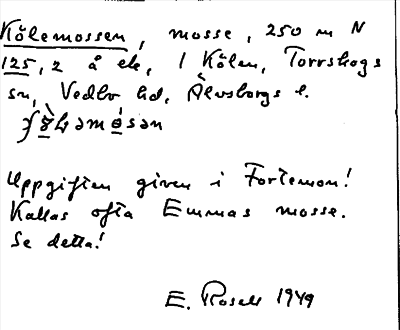 Kölemossen, mosse, 250 m N
125, z å ek, 1 Kölen, Torrskogs
sn, Vedbo hd, Älvsborgs l.
Uppgiften given i Fortemon!
Kallas ofta Emmas mosse.
Se detta!
E. Rosell 1949